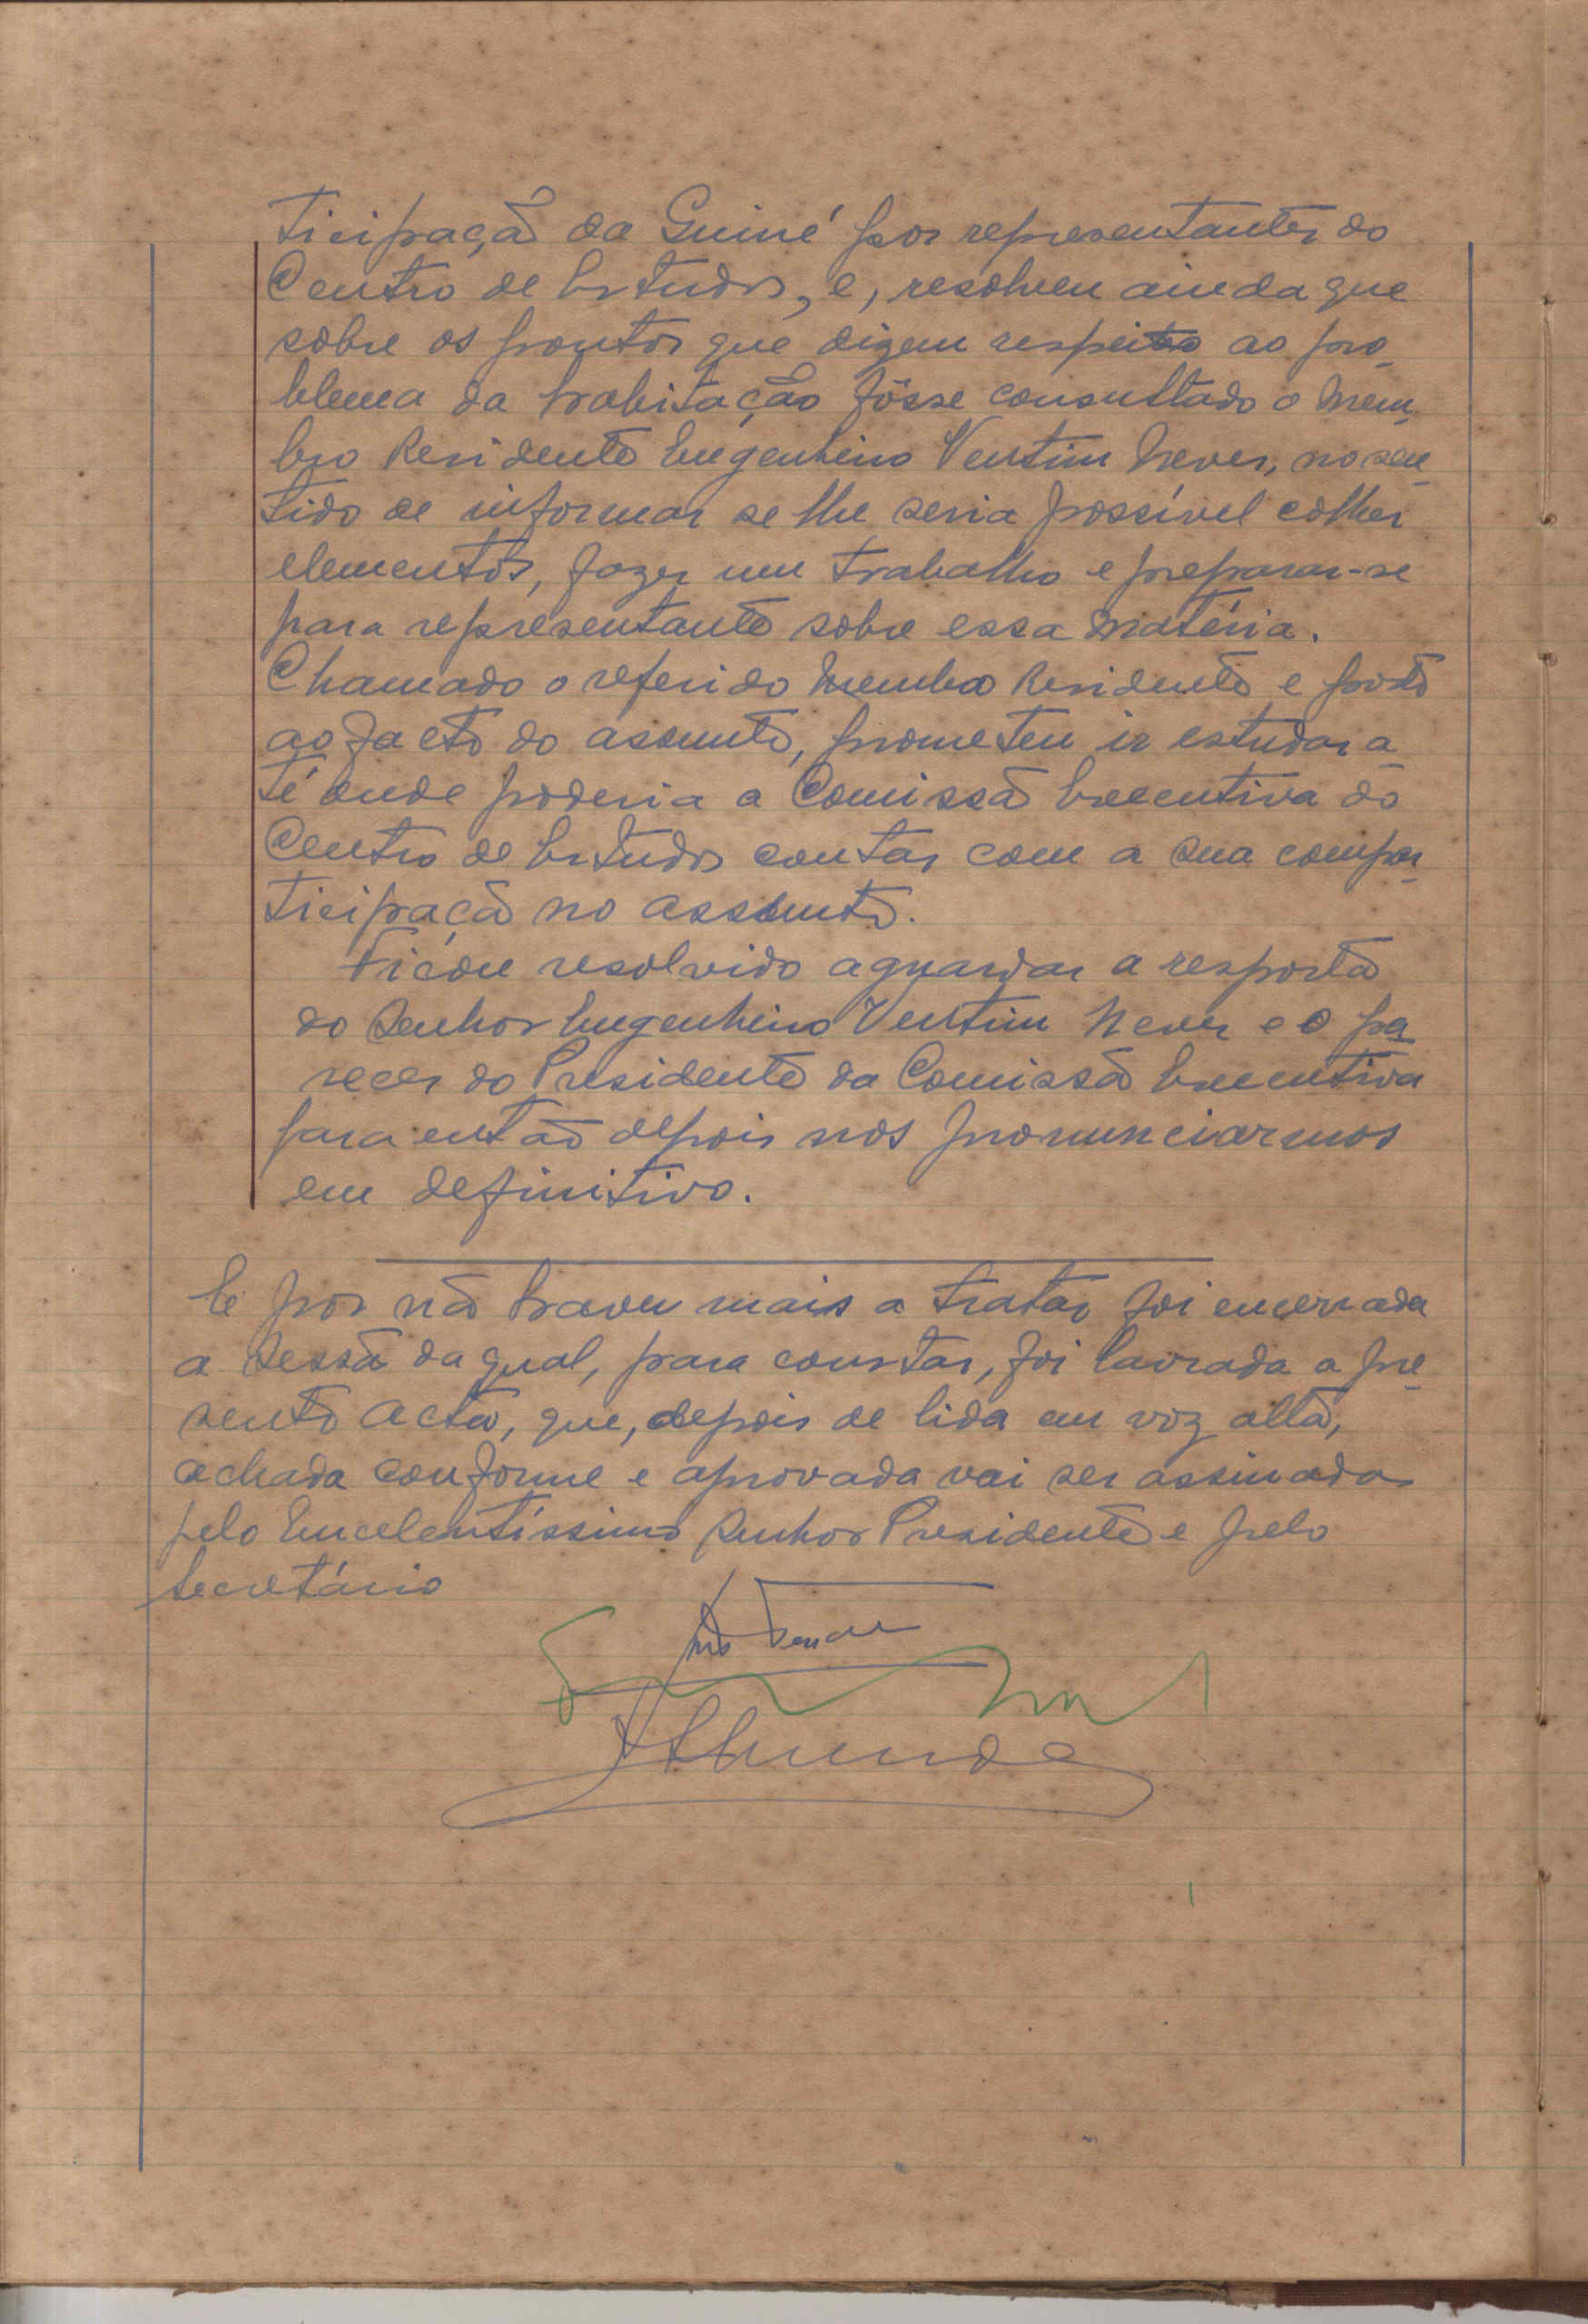 ticipação da Guiné por representantes do
Centro de Estudos, e, resolveu ainda que
sobre os pontos que dizem respeito ao pro-
blema da habitação fôsse consultado o Mem-
bro Residente Engenheiro Ventim Neves, no sen-
tido de informar se lhe seria possível colher
elementos, fazer um trabalho e preparar-se
para representante sobre essa matéria.
Chamado o referido Membro Residente e posto
ao facto do assunto, prometeu ir estudar a-
té onde poderia a Comissão Executiva do
Centro de Estudos contar com a sua compar-
ticipação no assunto.
Ficou resolvido aguardar a resposta
do Senhor Engenheiro Ventim Neves e o pa-
recer do Presidente da Comissão Executiva
para então depois nos pronunciarmos
em definitivo.
E por não haver mais a tratar foi encerrada
a Sessão da qual, para constar, foi lavrada a pre-
sente acta, que, depois de lida em voz alta,
achada conforme e aprovada vai ser assinada
pelo Excelentíssimo Senhor Presidente e pelo
Secretário